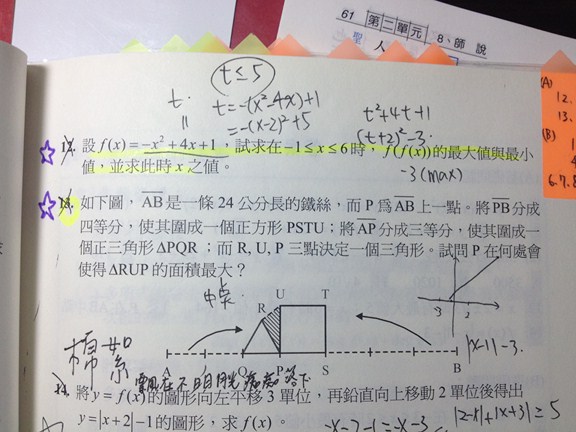 61 第二單元 8、師 說
聖 人
(A)
12.
13.
(B) 1
4
6.7.8
t≤5
t = -(x²-4x)+1
= -(x-2)²+5
t²+4t+1
(t+2)²-3
-3(max)
設 f(x)=-x²+4x+1，試求在 -1≤x≤6 時，f(f(x))的最大值與最小
值，並求此時 x 之值。
如下圖，AB是一條 24 公分長的鐵絲，而 P 爲AB上一點。將PB分成
四等分，使其圍成一個正方形 PSTU；將AP分成三等分，使其圍成一
個正三角形ΔPQR；而 R, U, P 三點決定一個三角形。試問 P 在何處會
使得ΔRUP 的面積最大？
中点
U T
R
A Q P S B
-3 2
|x-1|-3
棉絮
14. 將 y=f(x)的圖形向左平移 3 單位，再鉛直向上移動 2 單位後得出
y=|x+2|-1的圖形，求 f(x)。
-x-2-1=-x-3
|2-x|+|x+3|≥5